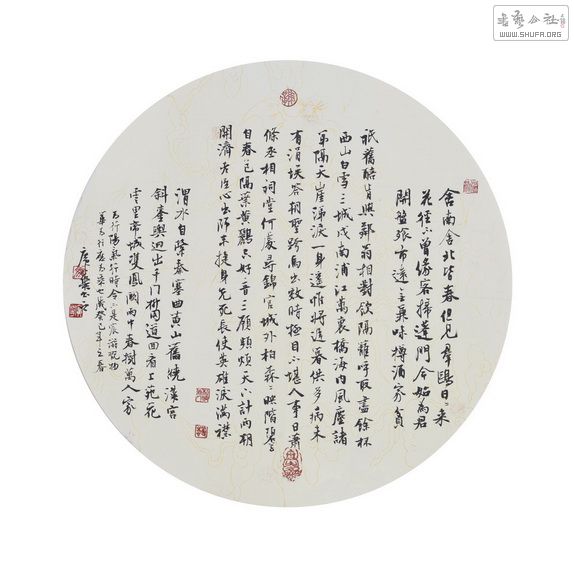 书艺公社
WWW.SHUFA.ORG
舍南舍北皆春但見羣鷗日日來
花徑不曾緣客掃蓬門今始為君
開盤飧市遠無兼味樽酒家貧
祇舊醅肯與鄰翁相對飲隔籬呼取盡餘杯
西山白雪三城戍南浦江萬裏橋海內風塵諸
弟隔天涯涕淚一身遙惟將遲暮供多病未
有涓埃答聖朝跨馬出郊時極目不堪人事日蕭
條丞相祠堂何處尋錦官城外柏森森映階碧草
自春色隔葉黃鸝空好音三顧頻煩天下計兩朝
開濟老臣心出師未捷身先死長使英雄淚滿襟
渭水自縈秦塞曲黃山舊繞漢宮
斜鑾輿迥出千門柳閣道回看上苑花
雲里帝城雙鳳闕雨中春樹萬人家
為行陽氣行時令不是宸游玩物
華 歲癸巳年之春